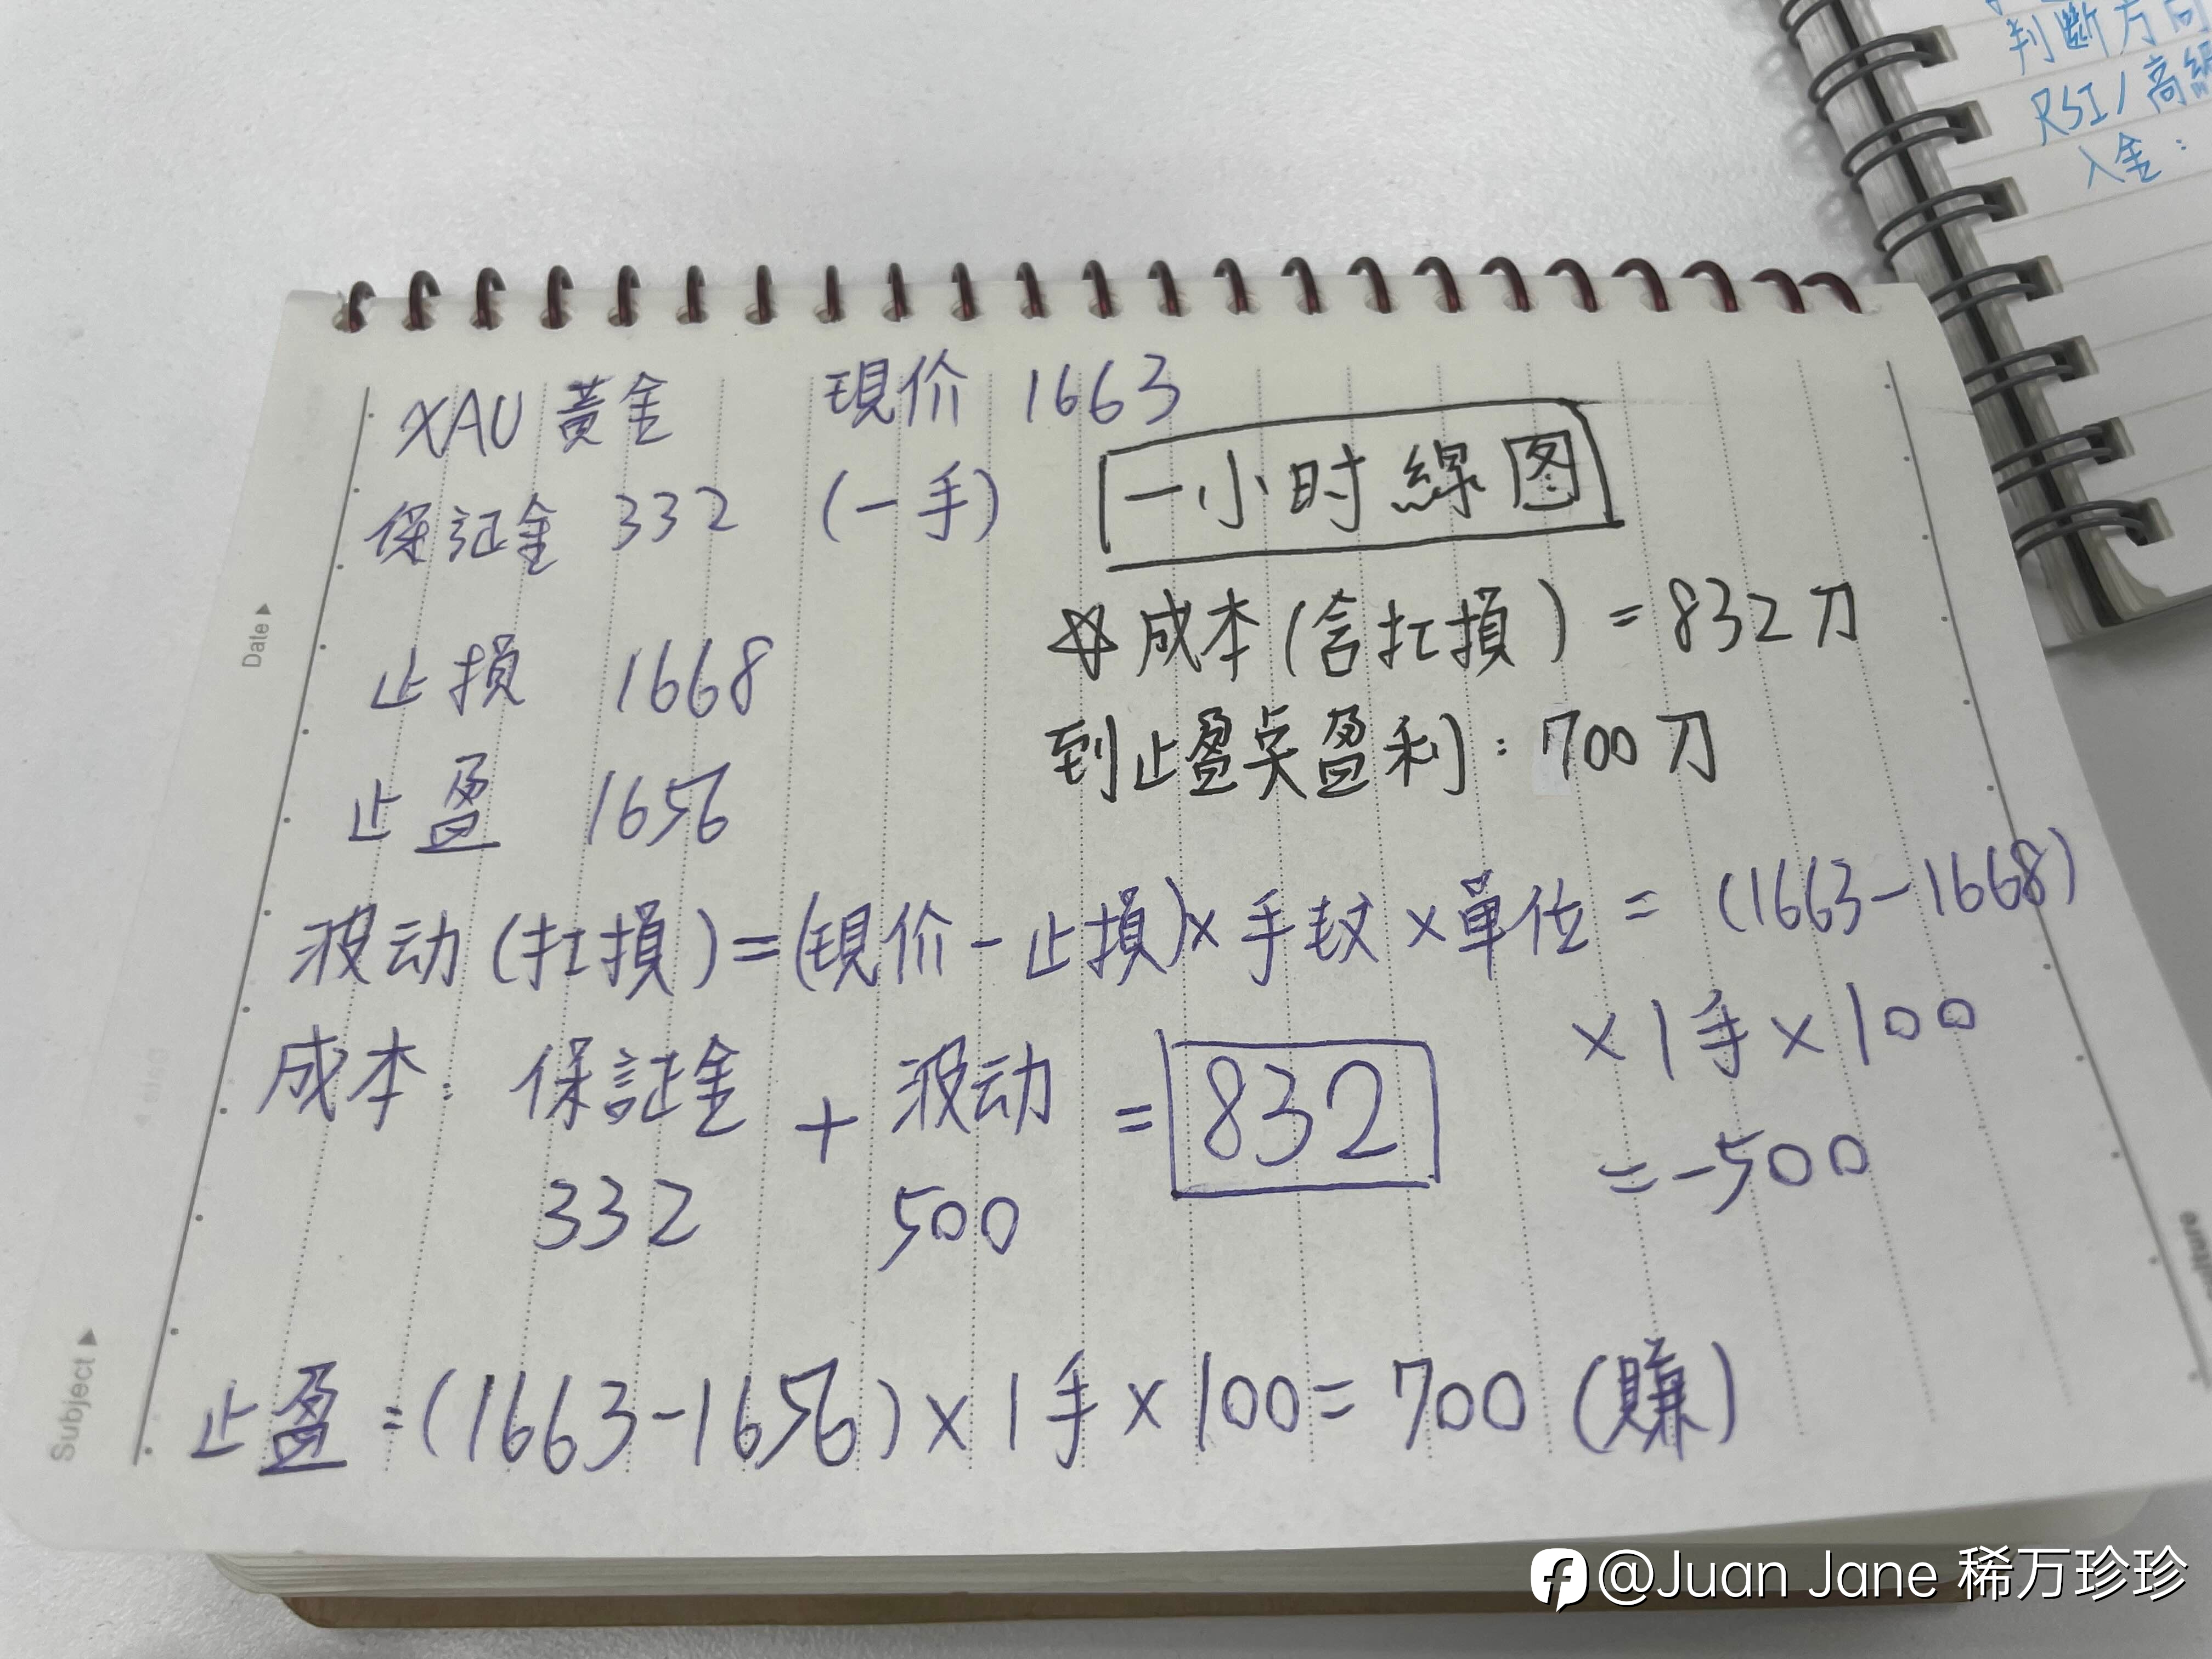 判斷方向
RSI/高級
入金：
XAU 黃金 現价 1663
保証金 332 (一手)
一小时線图
止損 1668
止盈 1656
☆成本(含扛損) = 832刀
到止盈点盈利: 700刀
波动(扛損)=(現价-止損)×手数×單位 = (1663-1668)
×1手×100
= -500
成本: 保証金 + 波动 = 832
332 500
止盈=(1663-1656)×1手×100=700 (賺)
Date
Subject
@Juan Jane 稀万珍珍